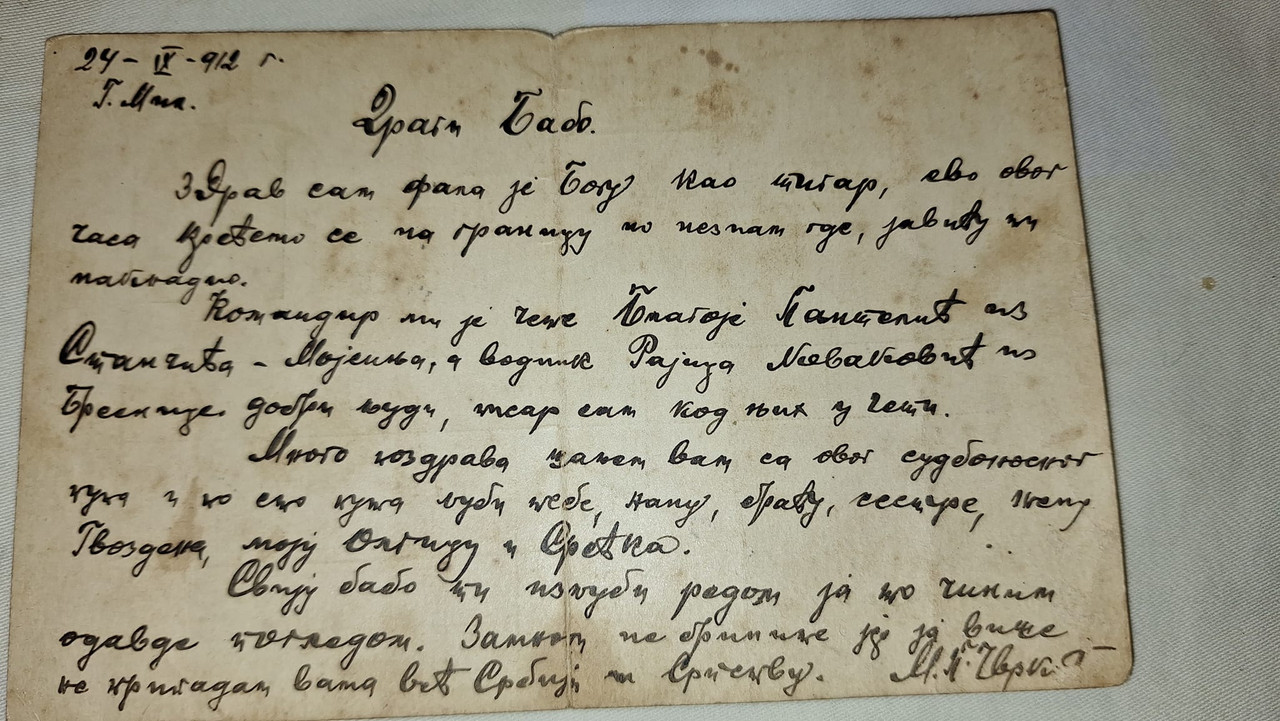 24 - IX - 912 г.
Г. Мил.
Драги Бабо.
Здрав сам фала је Богу као тигар, ево овог
часа крећемо се на границу но незнам где, јавићу ти
накнадно.
Командир ми је чете Благоје Пантелић из
Станчића - Мојсиња, а водник Рајица Новаковић из
Бреснице добри људи, писар сам код њих у чети.
Много поздрава шаљем вам са овог судбоносног
пута и по сто пута љуби тебе, нану, браћу, сестре, жену
Гвоздена, моју Олгицу и Срећка.
Свију бабо ти изљуби редом ја то чиним
одавде погледом. Замном не брините јер ја више
не припадам вама већ Србији и Српству. М. П.